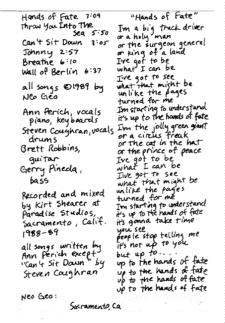 Hands of Fate 7:09
Throw You Into The
Sea 5:50
Can't Sit Down 3:05
Johnny 2:57
Breathe 6:10
Wall of Berlin 6:37
all songs ©1989 by
Neo Geo
Ann Perich, vocals
piano, keyboards
Steven Coughran, vocals
drums
Brett Robbins,
guitar
Gerry Pineda,
bass
Recorded and mixed
by Kirt Shearer at
Paradise Studios,
Sacramento, Calif.
1988-89
all songs written by
Ann Perich except
"Can't Sit Down" by
Steven Coughran
Neo Geo:
Sacramento, Ca
"Hands of Fate"
I'm a big truck driver
or a holy man
or the surgeon general
or king of a land
I've got to be
what I can be
I've got to see
what that might be
unlike the pages
turned for me
I'm starting to understand
it's up to the hands of fate
I'm the jolly green giant
or a circus freak
or the cat in the hat
or the prince of peace
I've got to be
what I can be
I've got to see
what that might be
unlike the pages
turned for me
I'm starting to understand
it's up to the hands of fate
it's gonna take time
you see
people stop telling me
it's not up to you
but up to....
up to the hands of fate
up to the hands of fate
up to the hands of fate
up to the hands of fate